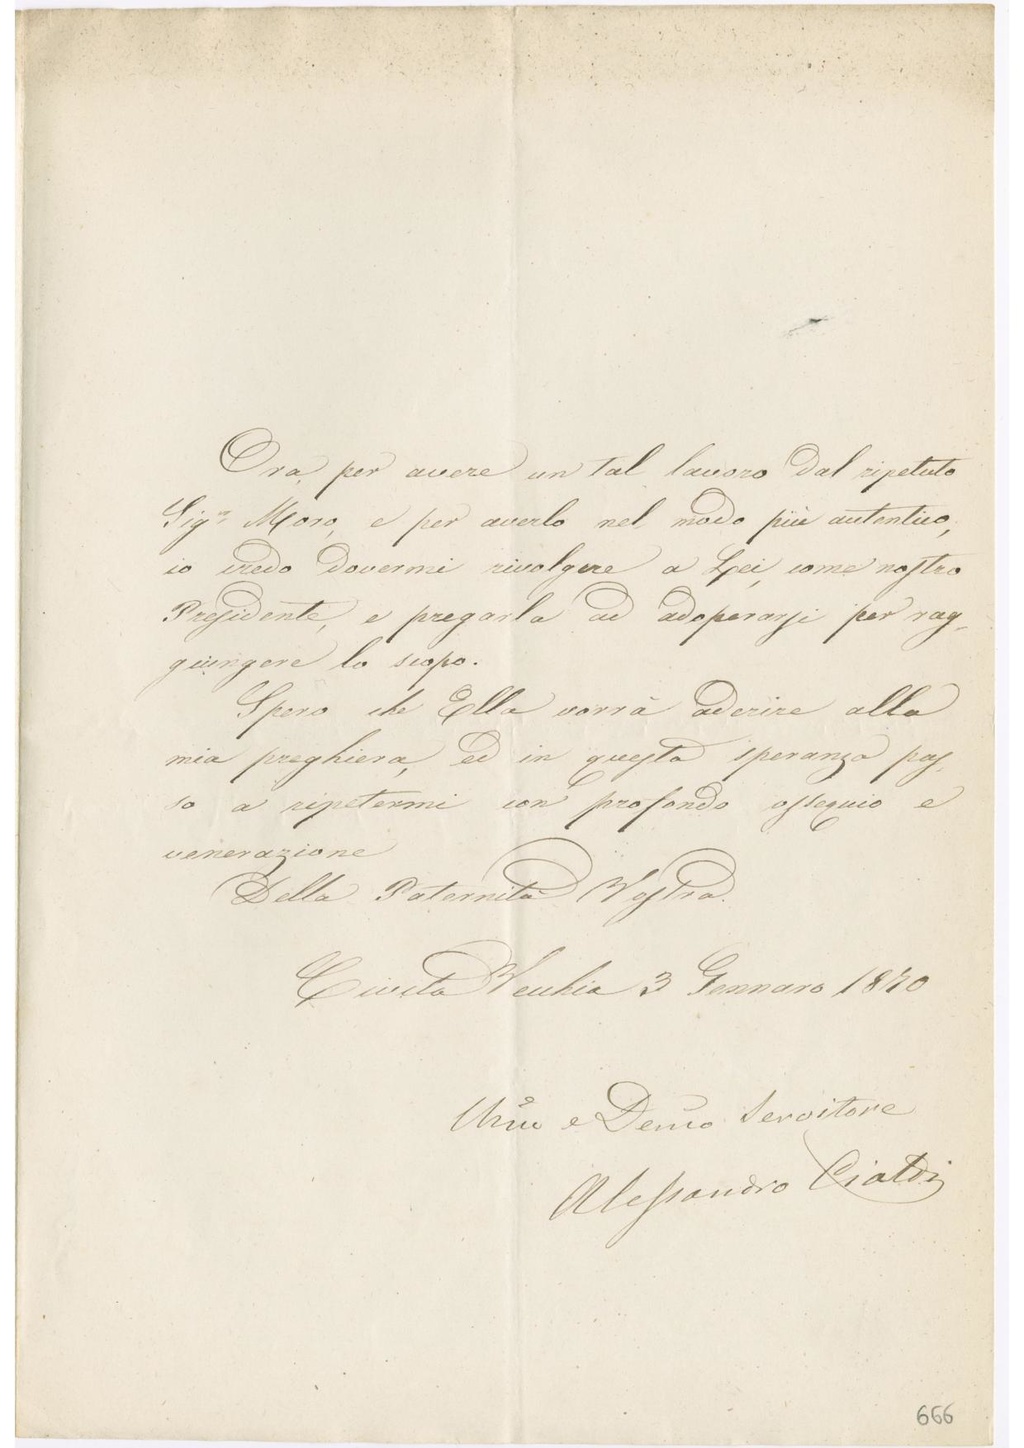 Ora, per avere un tal lavoro dal ripetuto
Sigr Moro, e per averlo nel modo più autentico,
io credo dovermi rivolgere a Lei, come nostro
Presidente, e pregarla ad adoperarsi per rag-
giungere lo scopo.
Spero che Ella vorrà aderire alla
mia preghiera, ed in questa speranza pas-
so a ripetermi con profondo ossequio e
venerazione
Della Paternità Vostra.
Civita Vecchia 3 Gennaro 1870
e Servitore
Alessandro Cialdi
666